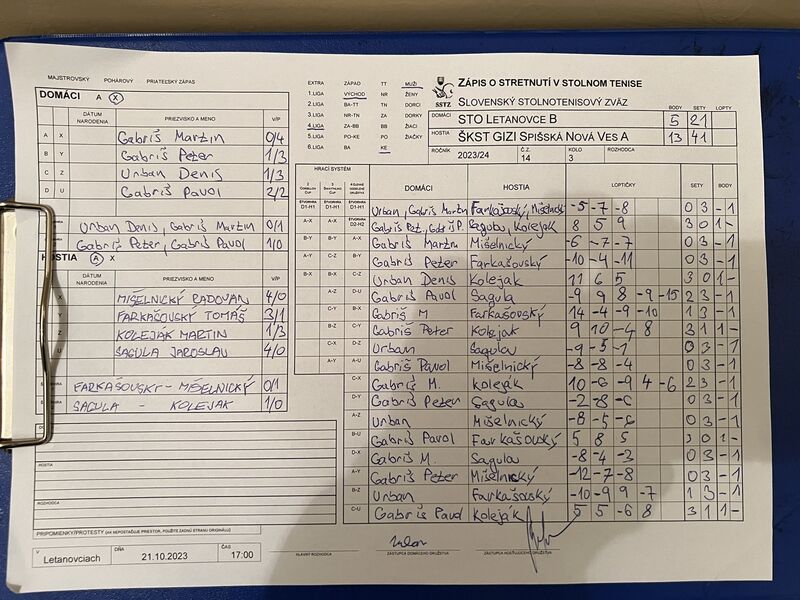 MAJSTROVSKÝ POHÁROVÝ PRIATEĽSKÝ ZÁPAS
DOMÁCI A X
DÁTUM NARODENIA PRIEZVISKO A MENO V/P
A X Gabriš Martin 0/4
B Y Gabriš Peter 1/3
C Z Urban Denis 1/3
D U Gabriš Pavol 2/2
Urban Denis, Gabriš Martin 0/1
Gabriš Peter, Gabriš Pavol 1/0
HOSTIA A X
DÁTUM NARODENIA PRIEZVISKO A MENO V/P
X MIŠELNICKÝ RADOVAN 4/0
Y FARKAŠOVSKÝ TOMÁŠ 3/1
Z KOLEJÁK MARTIN 1/3
U SAGULA JAROSLAV 4/0
FARKAŠOVSKÝ - MIŠELNICKÝ 0/1
SAGULA - KOLEJAK 1/0
HOSTIA
ROZHODCA
PRIPOMIENKY/PROTESTY (AK NEPOSTAČUJE PRIESTOR, POUŽITE ZADNÚ STRANU ORIGINÁLU)
V Letanovciach DŇA 21.10.2023 ČAS 17:00
EXTRA ZÁPAD TT MUŽI
1.LIGA VÝCHOD NR ŽENY
2.LIGA BA-TT TN DORCI
3.LIGA NR-TN ZA DORKY
4.LIGA ZA-BB BB ŽIACI
5.LIGA PO-KE PO ŽIAČKY
6.LIGA BA KE
SSTZ
ZÁPIS O STRETNUTÍ V STOLNOM TENISE
SLOVENSKÝ STOLNOTENISOVÝ ZVÄZ
BODY SETY LOPTY
DOMÁCI STO LETANOVCE B 5 21
HOSTIA ŠKST GIZI SPIŠSKÁ NOVÁ VES A 13 41
ROČNÍK 2023/24 Č.Z. 14 KOLO 3 ROZHODCA
HRACÍ SYSTÉM
DOMÁCI HOSTIA LOPTIČKY SETY BODY
Urban, Gabriš Martin Farkašovský, Mišelnický -5 -7 -8 0 3 -1
Gabriš Pet., Gabriš P. Sagula, Kolejak 8 5 9 3 0 1-
Gabriš Martin Mišelnický -6 -7 -7 0 3 -1
Gabriš Peter Farkašovský -10 -4 -11 0 3 -1
Urban Denis Kolejak 11 6 5 3 0 1-
Gabriš Pavol Sagula -9 9 8 -9 -15 2 3 -1
Gabriš M Farkašovský 14 -4 -9 -10 1 3 -1
Gabriš Peter Kolejak 9 10 -4 8 3 1 1-
Urban Sagula -9 -5 -1 0 3 -1
Gabriš Pavol Mišelnický -8 -8 -4 0 3 -1
Gabriš M. Kolejak 10 -6 -9 4 -6 2 3 -1
Gabriš Peter Sagula -2 -8 -6 0 3 -1
Urban Mišelnický -8 -5 -6 0 3 -1
Gabriš Pavol Farkašovský 5 8 5 3 0 1-
Gabriš M. Sagula -8 -4 -3 0 3 -1
Gabriš Peter Mišelnický -12 -7 -8 0 3 -1
Urban Farkašovský -10 -9 9 -7 1 3 -1
Gabriš Pavol Koleják 5 5 -6 8 3 1 1-
HLAVNÝ ROZHODCA ZÁSTUPCA DOMÁCEHO DRUŽSTVA ZÁSTUPCA HOSŤUJÚCEHO DRUŽSTVA